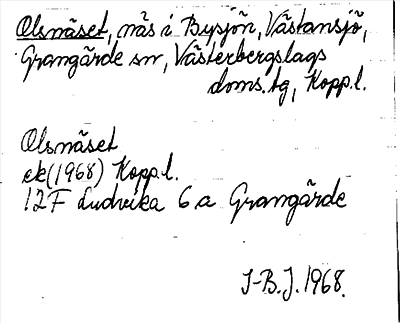 Olsnäset, näs i Bysjön, Västansjö,
Grangärde sn, Västerbergslags
doms.tg, Kopp.l.
Olsnäset
ek(1968) Kopp.l.
12F Ludvika 6 a Grangärde
I-B.J. 1968.